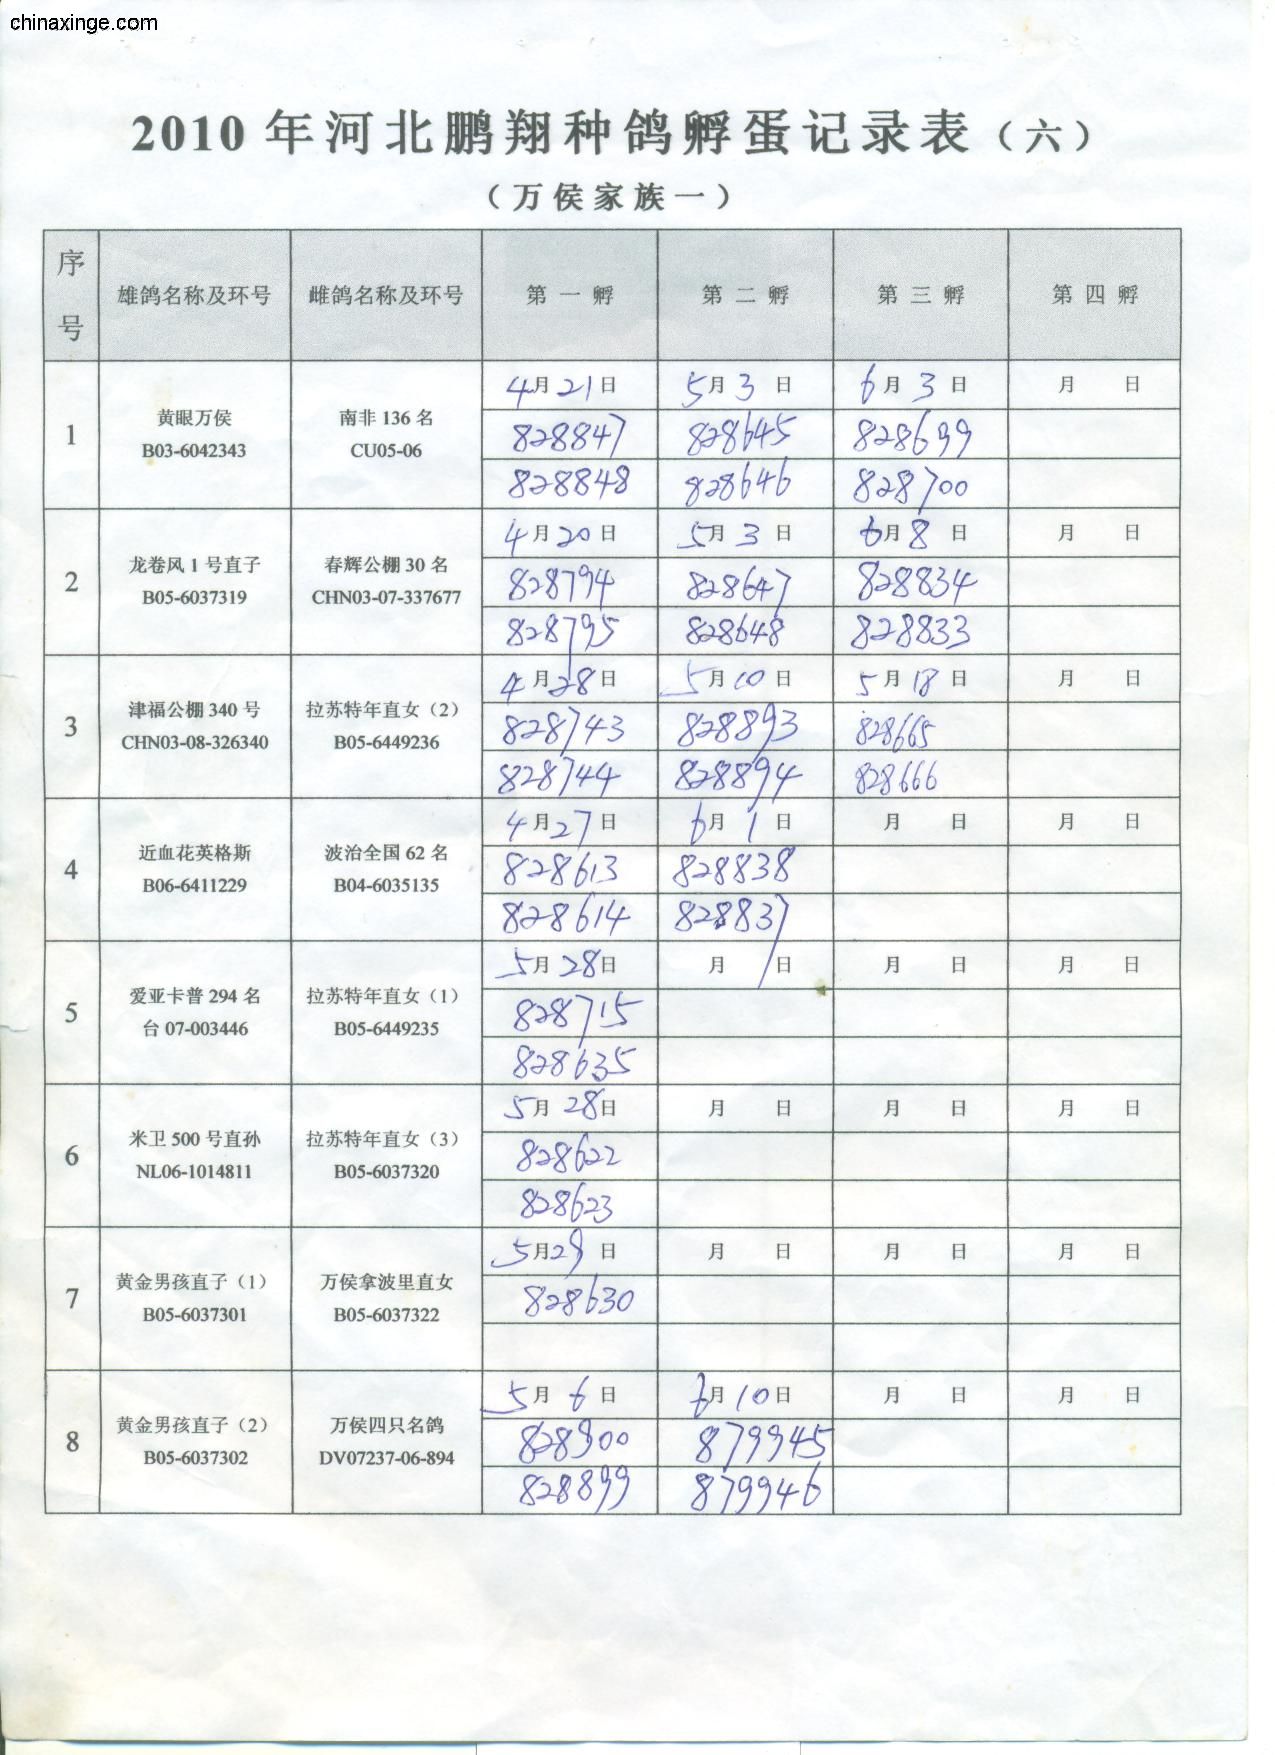 chinaxinge.com
2010 年河北鹏翔种鸽孵蛋记录表（六）
（万侯家族一）
序号 雄鸽名称及环号 雌鸽名称及环号 第一孵 第二孵 第三孵 第四孵
1 黄眼万侯 B03-6042343 南非 136 名 CU05-06 4月21日 5月3日 6月3日 月 日
828847 828645 828699
828848 828646 828700
2 龙卷风 1 号直子 B05-6037319 春辉公棚 30 名 CHN03-07-337677 4月20日 5月3日 6月8日 月 日
828794 828647 828834
828795 828648 828833
3 津福公棚 340 号 CHN03-08-326340 拉苏特年直女（2） B05-6449236 4月28日 5月10日 5月18日 月 日
828743 828893 828665
828744 828894 828666
4 近血花英格斯 B06-6411229 波治全国 62 名 B04-6035135 4月27日 6月1日 月 日 月 日
828613 828838
828614 828837
5 爱亚卡普 294 名 台 07-003446 拉苏特年直女（1） B05-6449235 5月28日 月 日 月 日 月 日
828715
828635
6 米卫 500 号直孙 NL06-1014811 拉苏特年直女（3） B05-6037320 5月28日 月 日 月 日 月 日
828622
828623
7 黄金男孩直子（1） B05-6037301 万侯拿波里直女 B05-6037322 5月29日 月 日 月 日 月 日
828630
8 黄金男孩直子（2） B05-6037302 万侯四只名鸽 DV07237-06-894 5月6日 6月10日 月 日 月 日
828900 879945
828899 879946